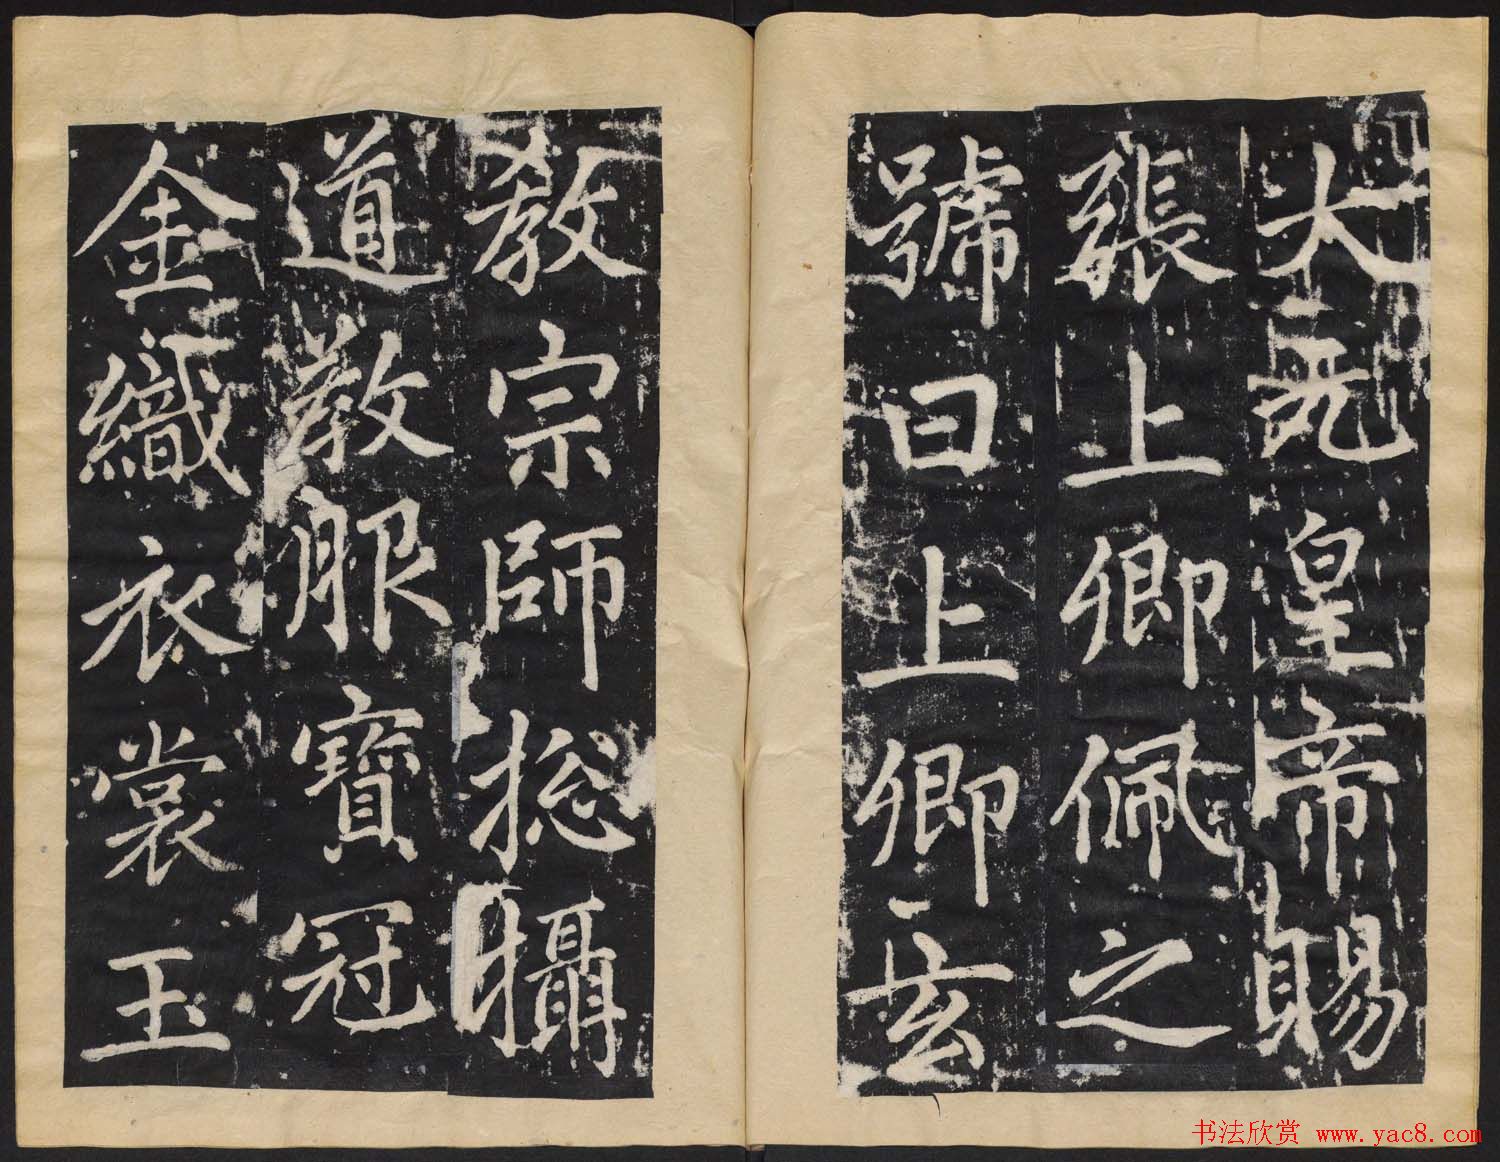 大元皇帝賜
張上卿佩之
號曰上卿玄
教宗師揔攝
道教服寶冠
金織衣裳玉
书法欣赏 www.yac8.com